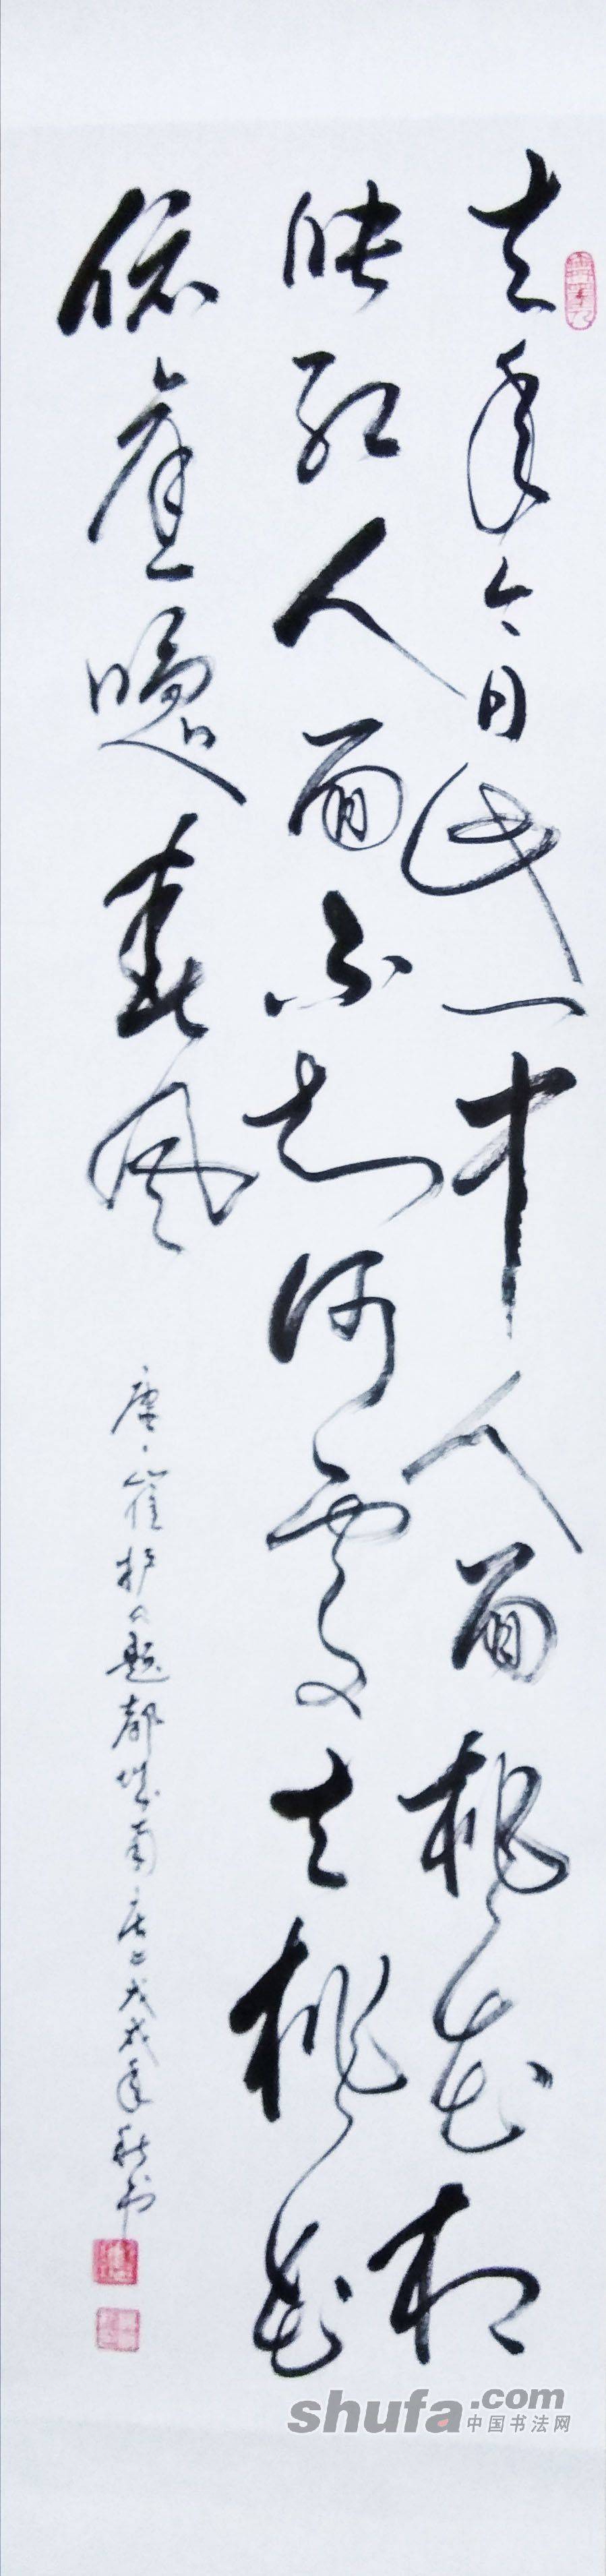 去年今日此门中人面桃花相
映红人面不知何處去桃花
依旧笑春风
唐·崔护《题都城南庄》戊戌年秋书
shufa.com
中国书法网